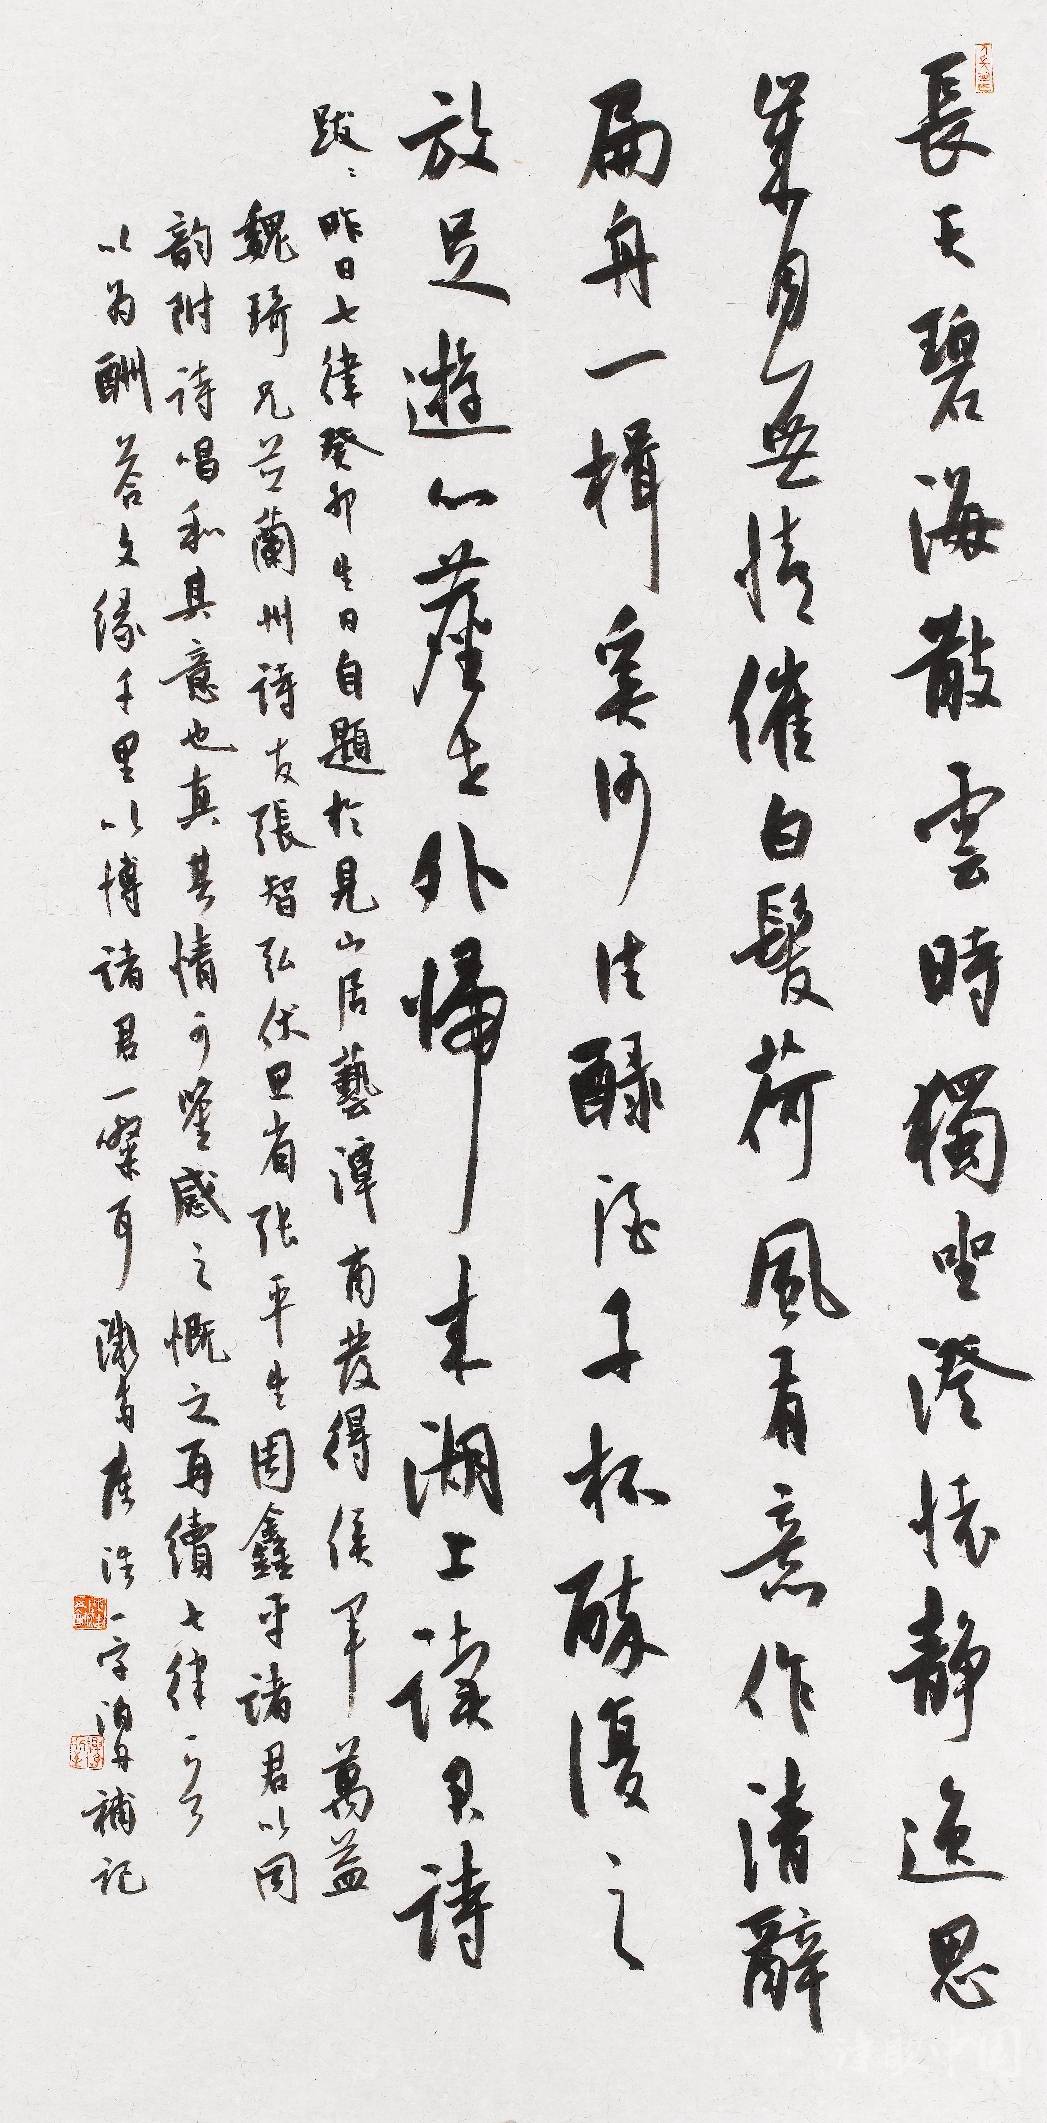 長天碧海散雲時獨坐澄懷靜逸思
歲月無情催白髮荷風有意作清辭
扁舟一楫奚何往醁酒千杯醉復之
放足遊心塵世外歸來湖上讀君詩
跋：昨日七律癸卯生日自題於見山居藝潭南發得侯軍萬益
魏琦兄並蘭州詩友張智弘伏思省張平生周鑫平諸君以同
韵附詩唱和其意也真其情可鑒感之慨之再續七律一首
以为酬答文缘千里以博諸君一粲耳 崔浩一字泊舟補記